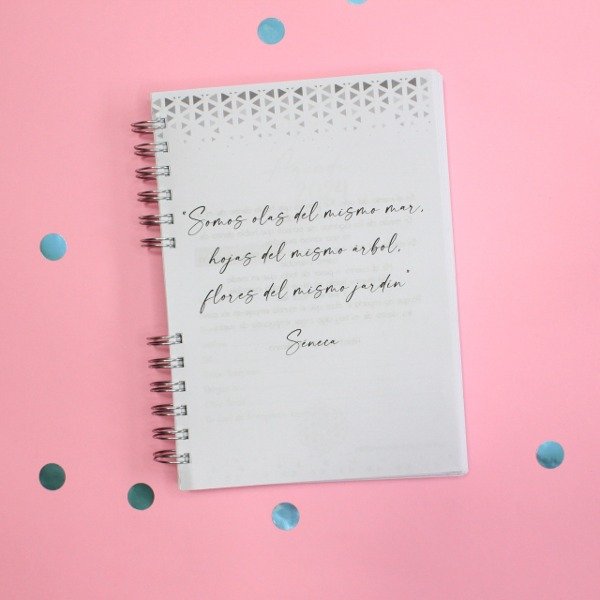 "Somos olas del mismo mar,
hojas del mismo árbol,
flores del mismo jardín"
Séneca